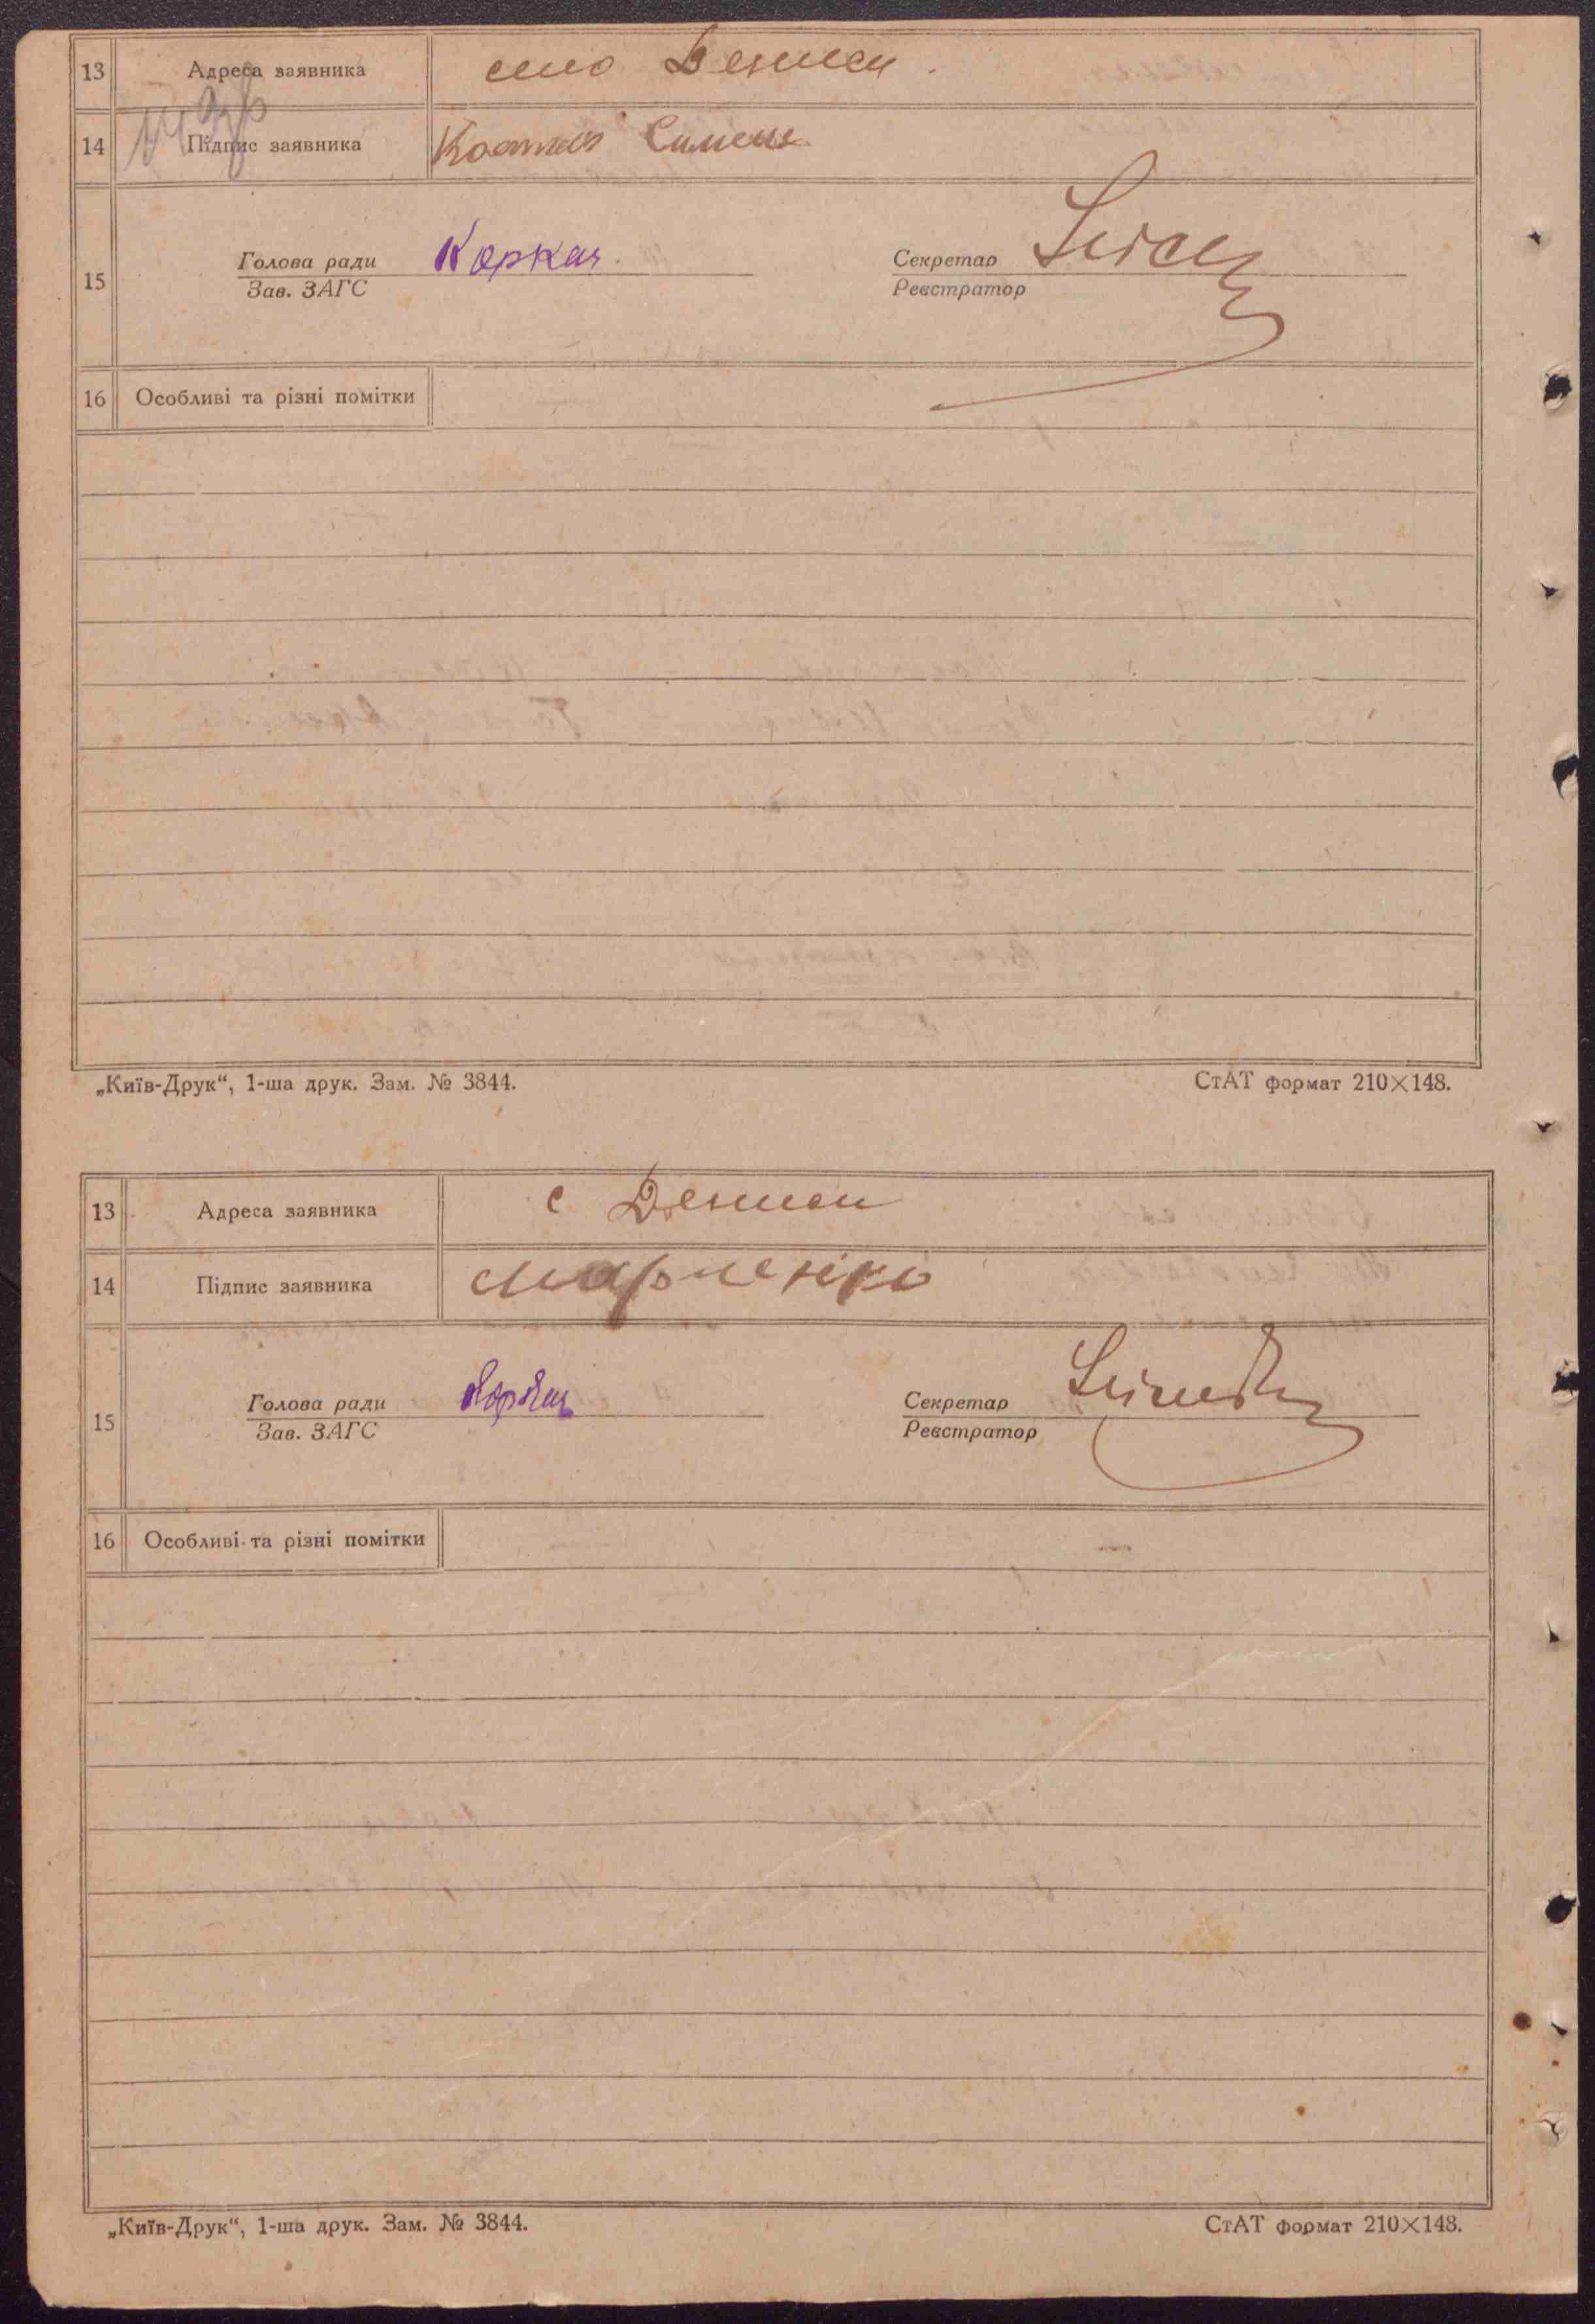 13 Адреса заявника село Дениси.
14 Підпис заявника Симон
15 Голова ради Коркач. Секретар
Зав. ЗАГС Реєстратор
16 Особливі та різні помітки
„Київ-Друк“, 1-ша друк. Зам. № 3844. СтАТ формат 210×148.
13 Адреса заявника с Дениси
14 Підпис заявника Марченко
15 Голова ради Секретар
Зав. ЗАГС Реєстратор
16 Особливі та різні помітки
„Київ-Друк“, 1-ша друк. Зам. № 3844. СтАТ формат 210×148.